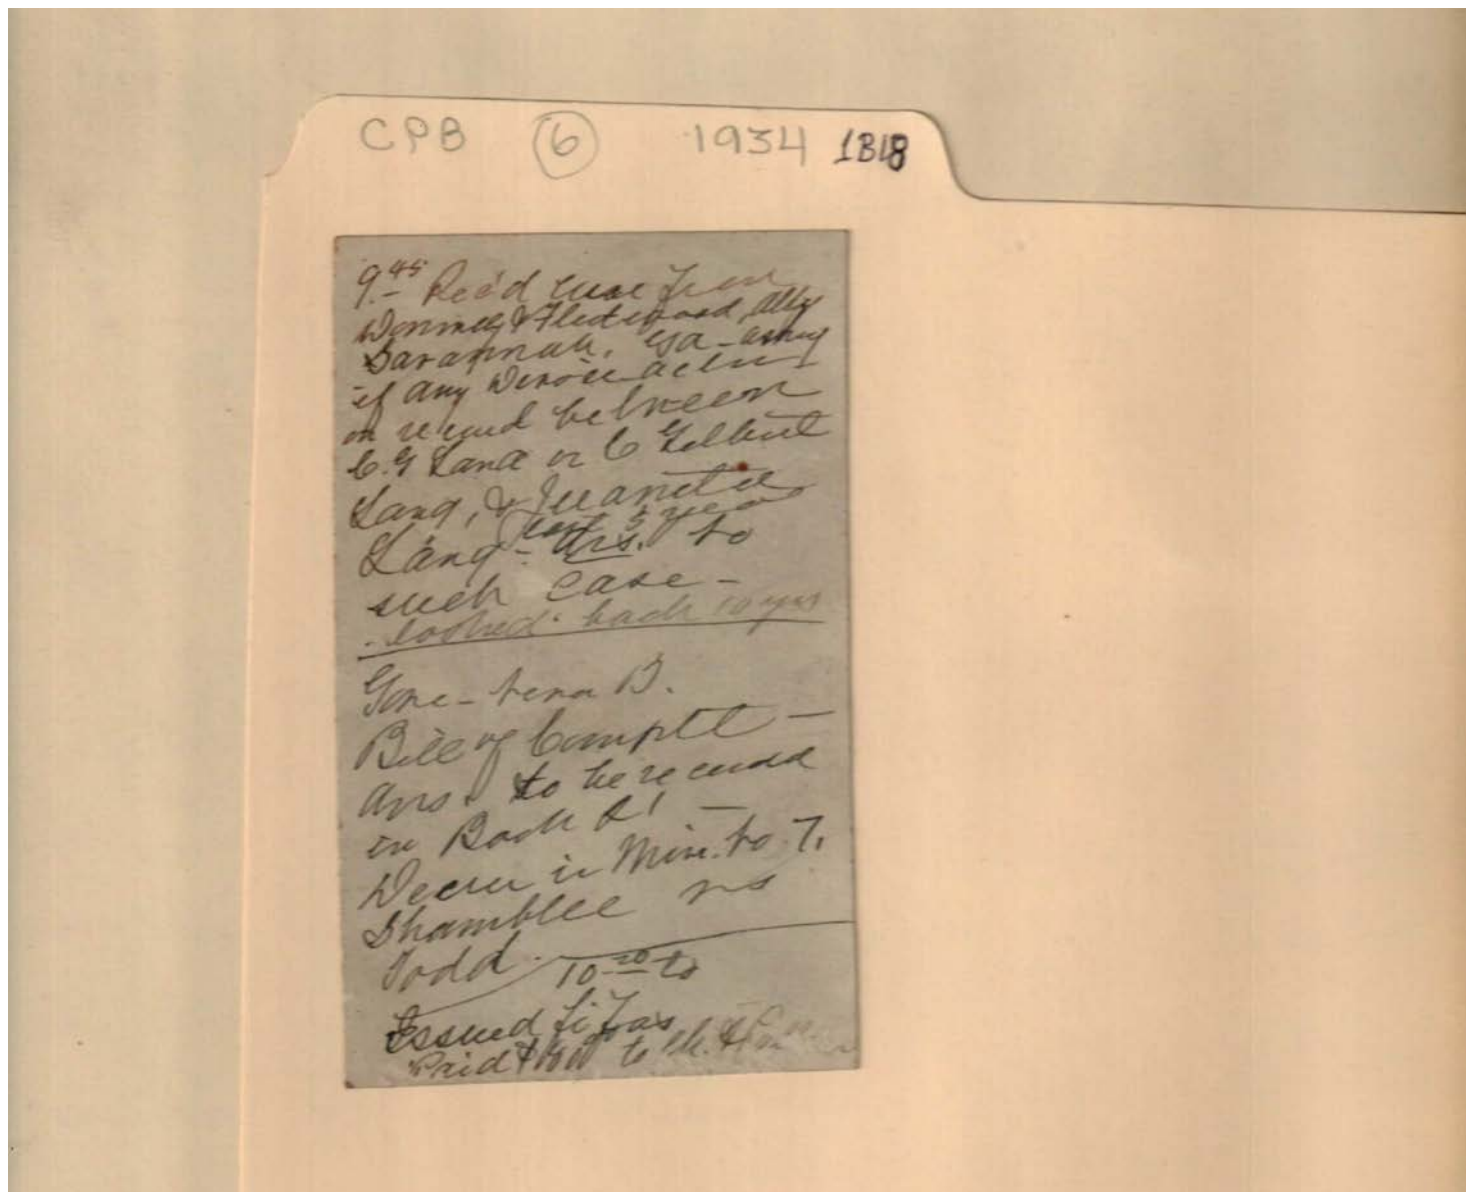 CPB 6 1934 1B18
9.45 Rec'd
& Fleetwood, atty
Savannah, Ga - asking
if any Divorce action
on record between
C. G Lang or C Gilbert
Lang, & Juanita
last 5 years
Lang - Ans. to
such case -
looked back 10 yrs
Gore -
Bill of Complt -
Ans. to be record
in Book
Decree in Min. to 7.
Shamblee vs
Todd.
10 to
Issued Fi Fas
Paid to